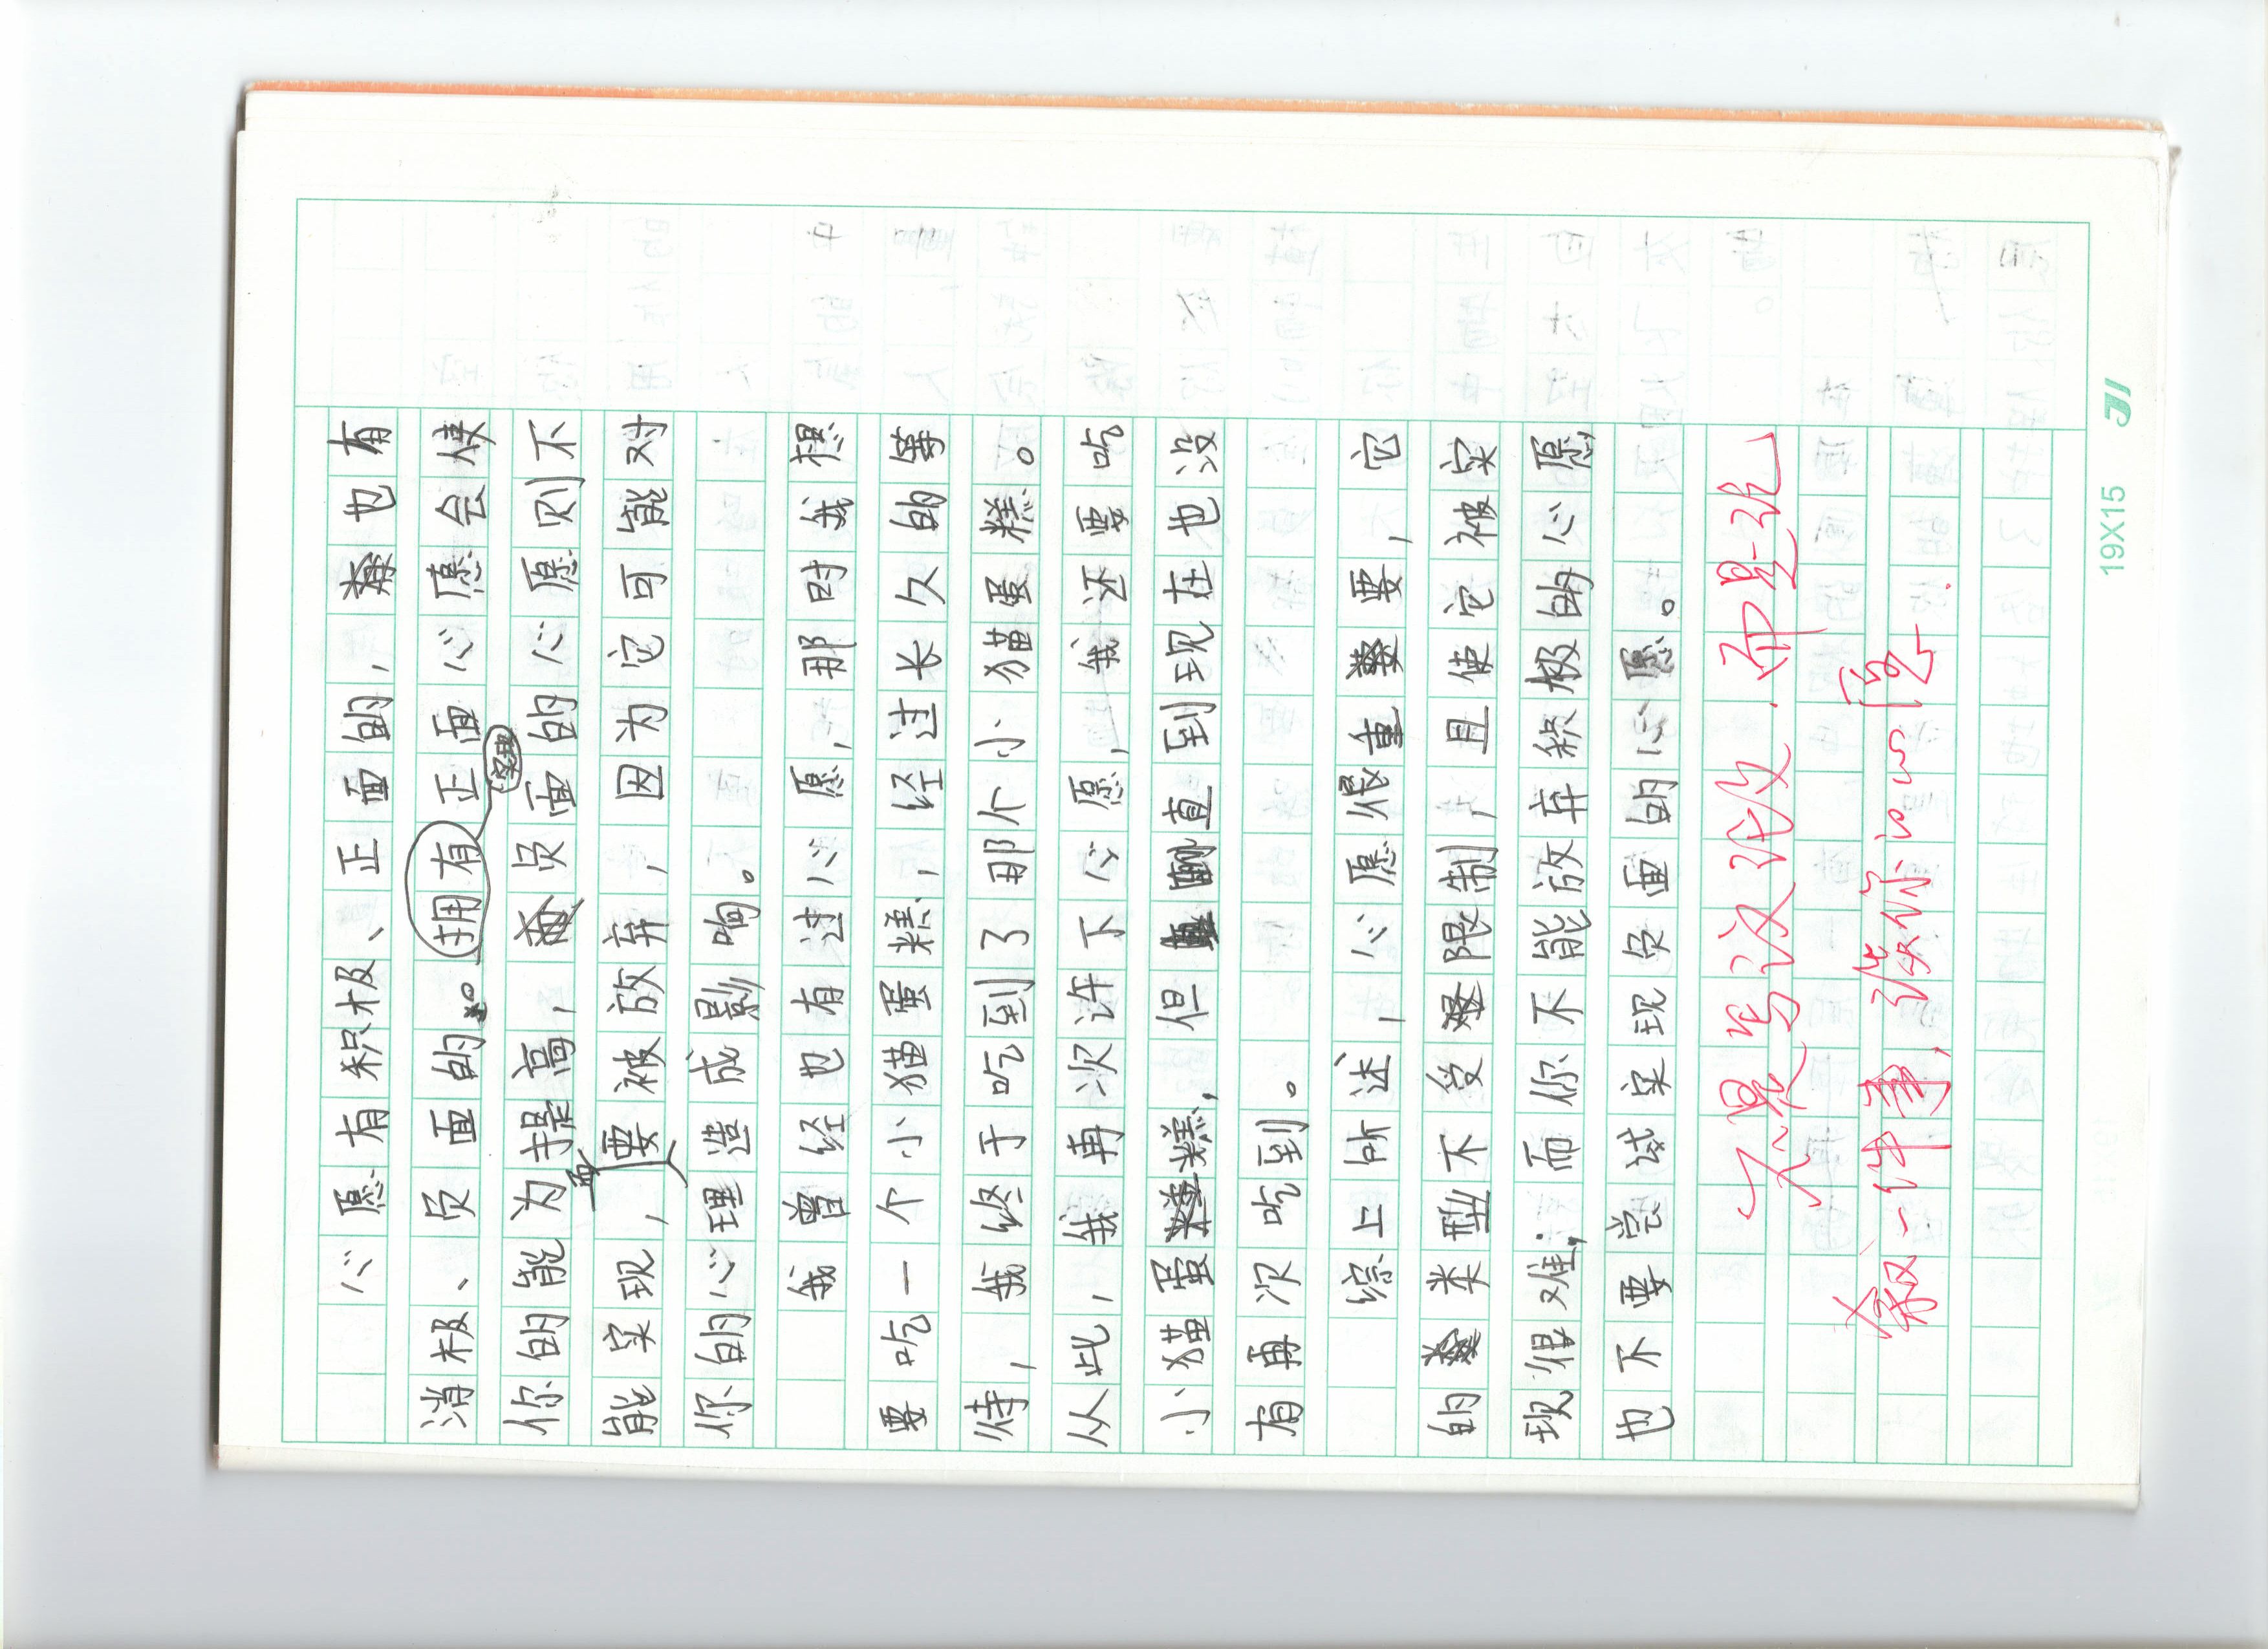 心愿有积极、正面的,也有
消极、负面的。拥有正面心愿会使
实现
你的能为提高,负面的心愿则不
能实现,要被放弃,因为它可能对
你的心理造成影响。
我曾经也有过心愿,那时我想
要吃一个小猫蛋糕,经过长久的等
待,我终于吃到了那个小猫蛋糕。
从此,我再次许下心愿,我还要吃
小猫蛋糕,但直到现在也没
有再次吃到。
综上所述,心愿很重要,它
的类型不受限制,且使它被实
现很难;而你不能放弃积极的心愿
也不要尝试实现负面的心愿。
不是写议论文.而是记
叙一件事,谈你的心愿.
19X15